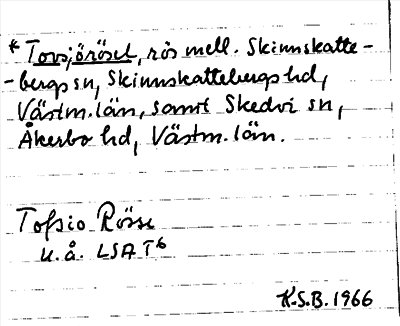 * Torsjörösel, rös mell. Skinnskatte-
-bergs sn, Skinnskattebergs hd,
Västm. län, samt Skedvi sn,
Åkerbo hd, Västm. län.
Tofsio Rösse
u.å. LSA T6
K.S.B. 1966